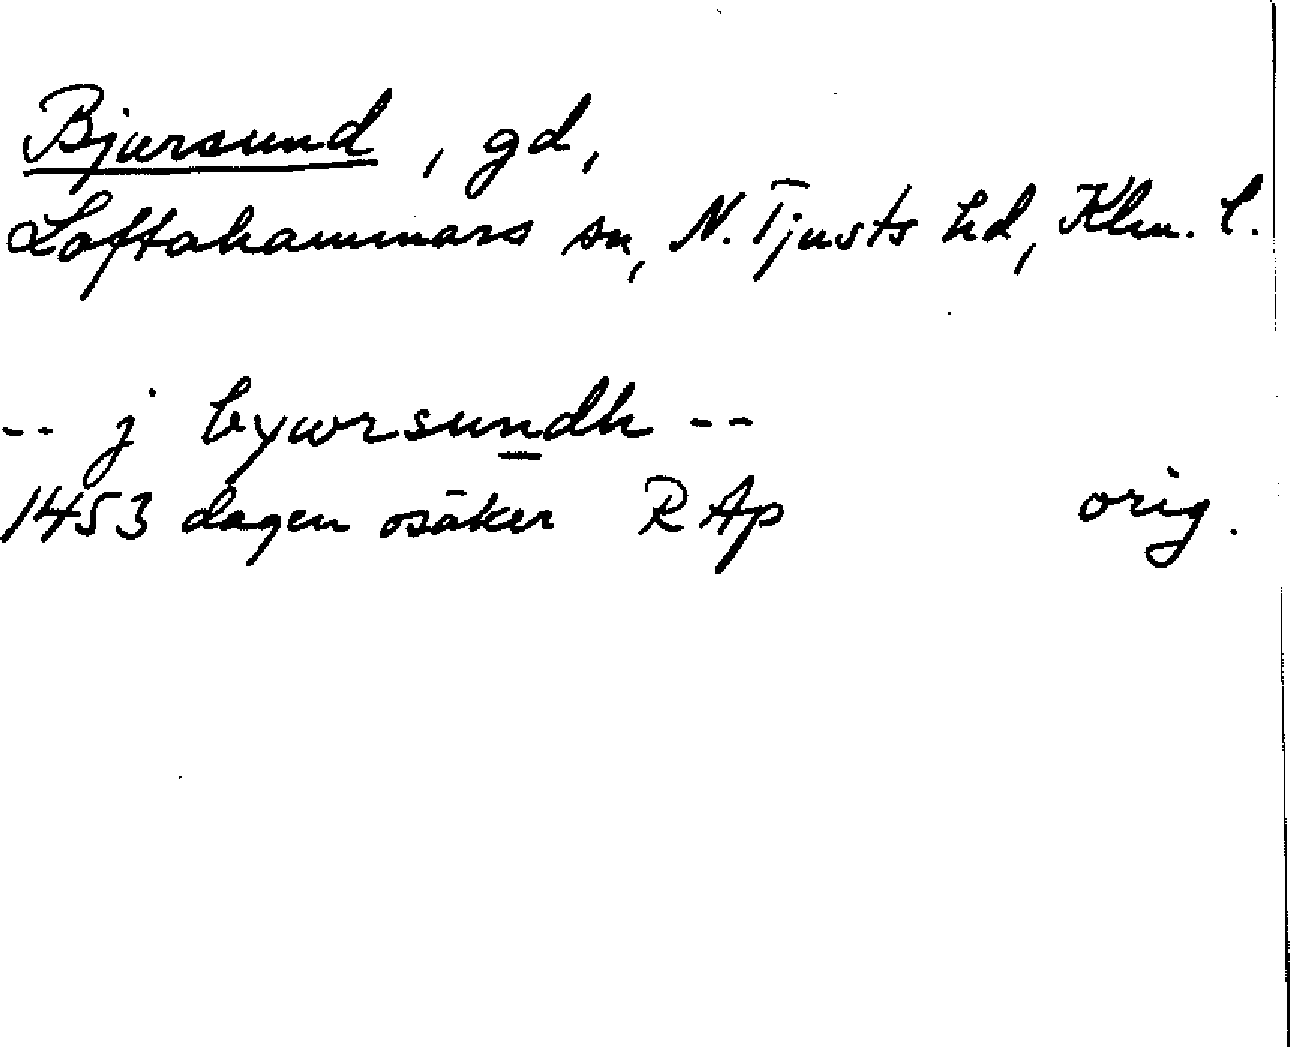 Bjursund, gd,
Loftahammars sn, N. Tjusts hd, Klm. l.
-- j bywrsundh --
1453 dagen osäker RAp orig.